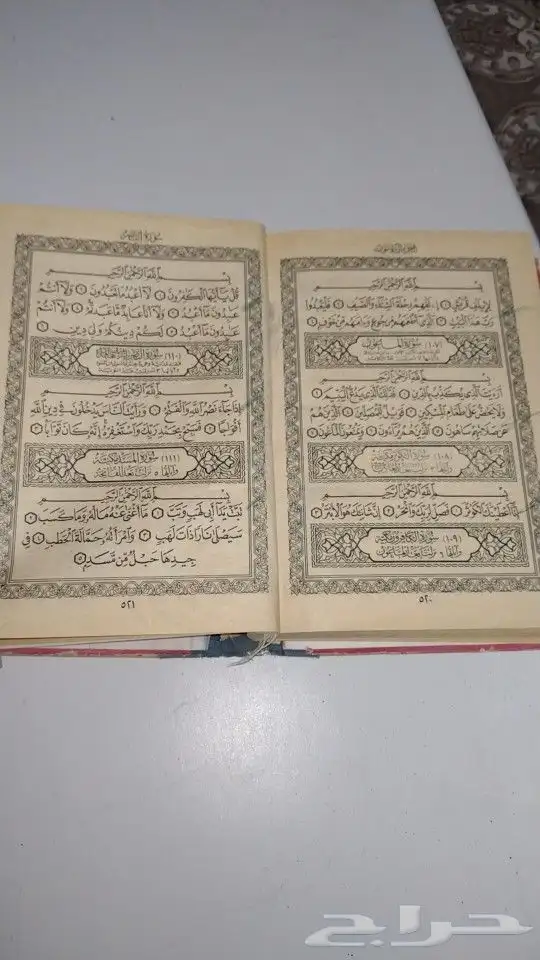 الجزء الثلاثون
بِسْمِ اللَّهِ الرَّحْمَٰنِ الرَّحِيمِ
لِإِيلَافِ قُرَيْشٍ ١ إِۦلَافِهِمْ رِحْلَةَ الشِّتَاءِ وَالصَّيْفِ ٢ فَلْيَعْبُدُوا
رَبَّ هَٰذَا الْبَيْتِ ٣ الَّذِي أَطْعَمَهُم مِّن جُوعٍ وَءَامَنَهُم مِّنْ خَوْفٍ ٤
(١٠٧) سورة الماعون
بِسْمِ اللَّهِ الرَّحْمَٰنِ الرَّحِيمِ
أَرَءَيْتَ الَّذِي يُكَذِّبُ بِالدِّينِ ١ فَذَٰلِكَ الَّذِي يَدُعُّ الْيَتِيمَ ٢
وَلَا يَحُضُّ عَلَىٰ طَعَامِ الْمِسْكِينِ ٣ فَوَيْلٌ لِّلْمُصَلِّينَ ٤ الَّذِينَ هُمْ
عَن صَلَاتِهِمْ سَاهُونَ ٥ الَّذِينَ هُمْ يُرَاءُونَ ٦ وَيَمْنَعُونَ الْمَاعُونَ ٧
(١٠٨) سورة الكوثر مكية
وآياتها ٣ نزلت بعد العاديات
بِسْمِ اللَّهِ الرَّحْمَٰنِ الرَّحِيمِ
إِنَّا أَعْطَيْنَاكَ الْكَوْثَرَ ١ فَصَلِّ لِرَبِّكَ وَانْحَرْ ٢ إِنَّ شَانِئَكَ هُوَ الْأَبْتَرُ ٣
(١٠٩) سورة الكافرون مكية
وآياتها ٦ نزلت بعد الماعون
٥٢٠
بِسْمِ اللَّهِ الرَّحْمَٰنِ الرَّحِيمِ
قُلْ يَا أَيُّهَا الْكَافِرُونَ ١ لَا أَعْبُدُ مَا تَعْبُدُونَ ٢ وَلَا أَنتُمْ
عَابِدُونَ مَا أَعْبُدُ ٣ وَلَا أَنَا عَابِدٌ مَّا عَبَدتُّمْ ٤ وَلَا أَنتُمْ
عَابِدُونَ مَا أَعْبُدُ ٥ لَكُمْ دِينُكُمْ وَلِيَ دِينِ ٦
(١١٠) سورة النصر
بِسْمِ اللَّهِ الرَّحْمَٰنِ الرَّحِيمِ
إِذَا جَاءَ نَصْرُ اللَّهِ وَالْفَتْحُ ١ وَرَأَيْتَ النَّاسَ يَدْخُلُونَ فِي دِينِ اللَّهِ
أَفْوَاجًا ٢ فَسَبِّحْ بِحَمْدِ رَبِّكَ وَاسْتَغْفِرْهُ إِنَّهُ كَانَ تَوَّابًا ٣
(١١١) سورة المسد مكية
وآياتها ٥ نزلت بعد الفاتحة
بِسْمِ اللَّهِ الرَّحْمَٰنِ الرَّحِيمِ
تَبَّتْ يَدَا أَبِي لَهَبٍ وَتَبَّ ١ مَا أَغْنَىٰ عَنْهُ مَالُهُ وَمَا كَسَبَ ٢
سَيَصْلَىٰ نَارًا ذَاتَ لَهَبٍ ٣ وَامْرَأَتُهُ حَمَّالَةَ الْحَطَبِ ٤ فِي
جِيدِهَا حَبْلٌ مِّن مَّسَدٍ ٥
٥٢١
حراج